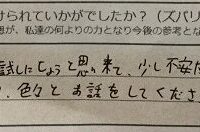 けられていかがでしたか？（ズバリ
想が、私達の何よりの力となり今後の参考とな
試しにしようと思って来て、少し不安だ
、色々とお話をしてくださ